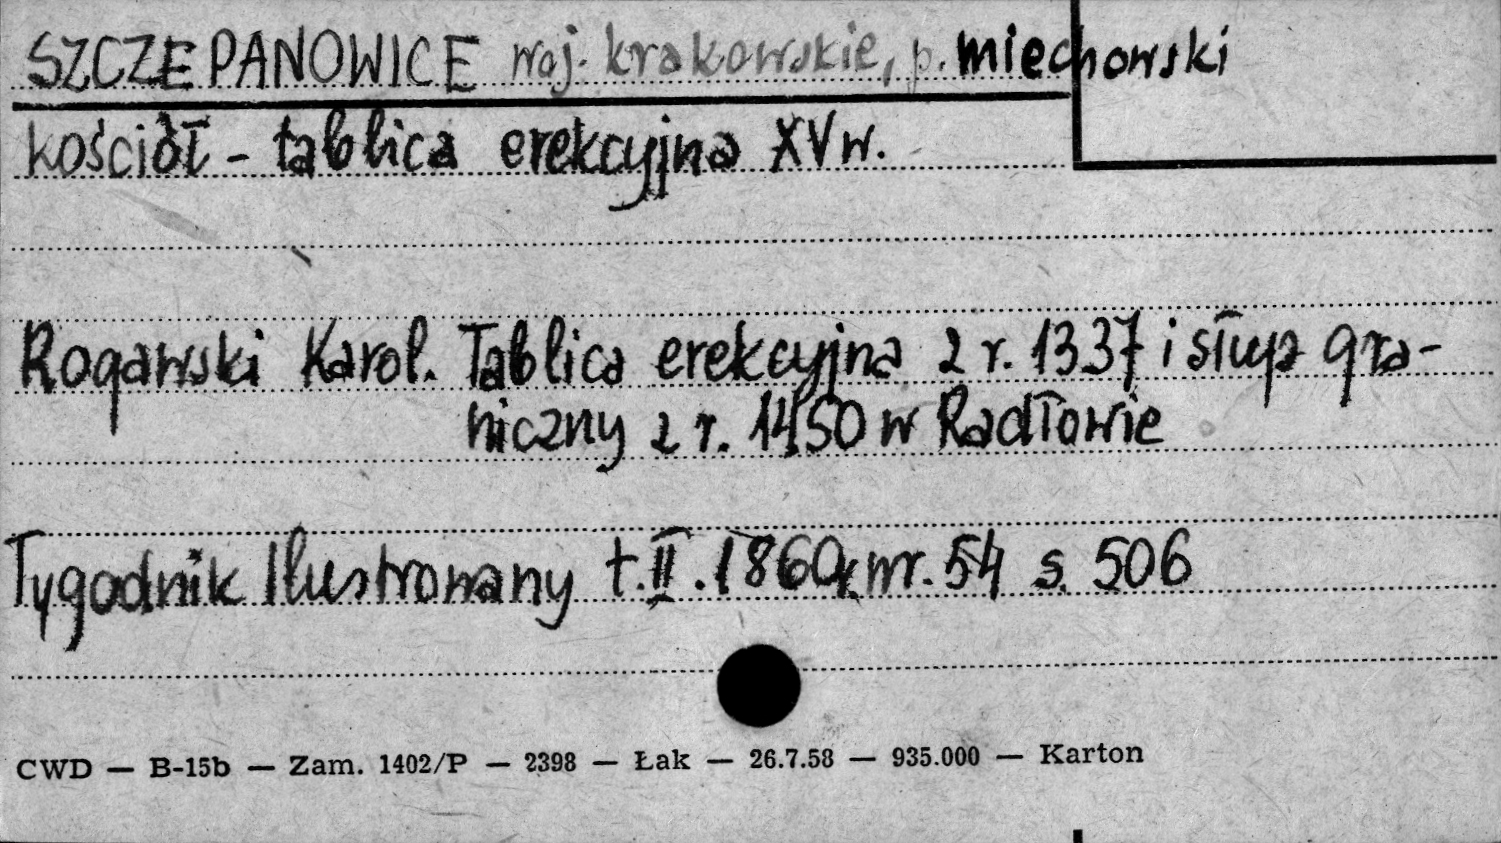 SZCZEPANOWICE woj. krakowskie, p. miechowski
kościół - tablica erekcyjna XV w.
Rogawski Karol. Tablica erekcyjna z r. 1337 i słup gra-
niczny z r. 1450 w Radłowie
Tygodnik Ilustrowany t. II. 1860r. nr. 54 s. 506
CWD — B-15b — Zam. 1402/P — 2398 — Łak — 26.7.58 — 935.000 — Karton